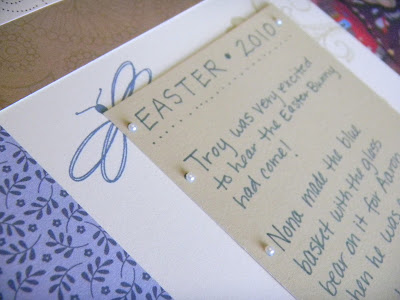 EASTER • 2010
Troy was very excited
to hear the Easter Bunny
had come!
Nona made the blue
basket with the glass
bear on it for Aaron
when he was a